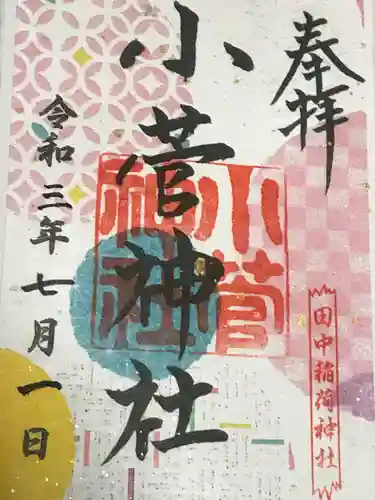 奉拝
小菅神社
小菅
神社
田中稲荷神社
令和三年七月一日